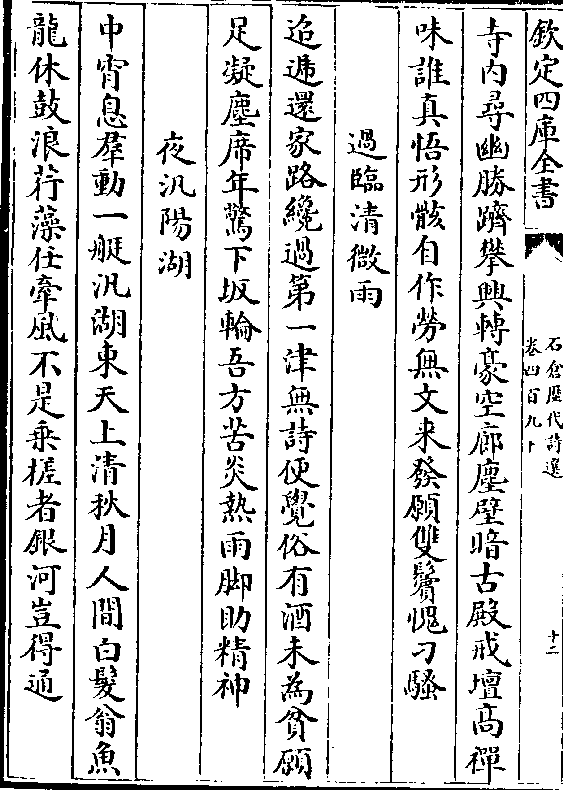 欽定四庫全書
石倉歴代詩選
卷四百九十
十二
寺内尋幽勝躋攀興轉豪空廊塵壁暗古殿戒壇高禪
味誰真悟形骸自作勞無文來發願雙鬢愧刁騷
過臨清微雨
迢遞還家路纔過第一津無詩便覺俗有酒未為貧願
足凝塵席年驚下坂輪吾方苦炎熱雨脚助精神
夜汎陽湖
中宵息羣動一艇汎湖東天上清秋月人間白髮翁魚
龍休鼓浪荇藻任牽風不是乗槎者銀河豈得通